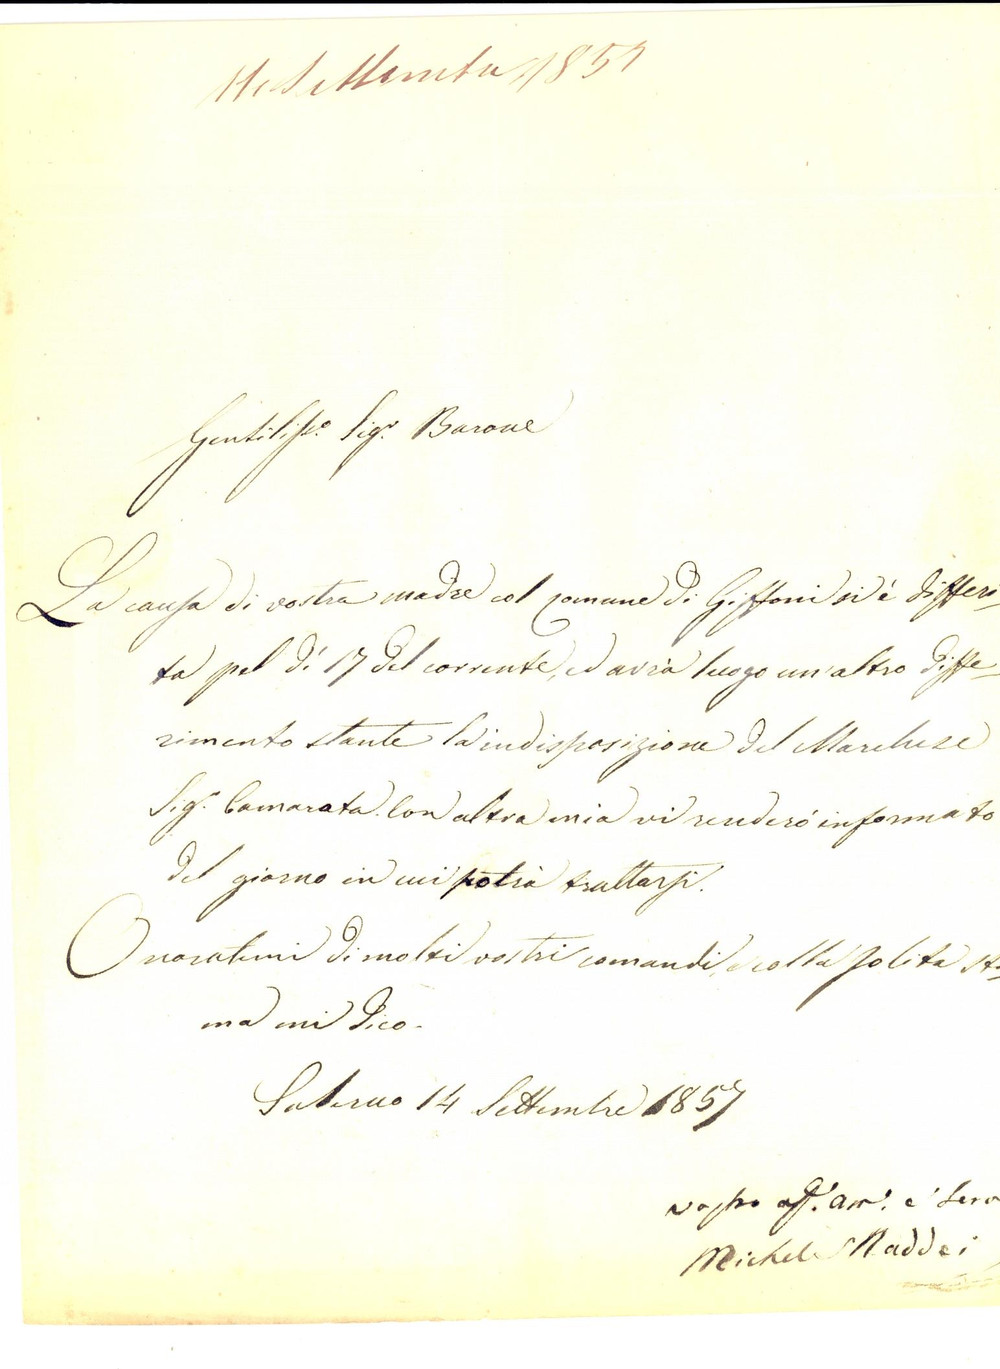 14 Settembre 1857
Gentiliss.o Sig.r Barone
La causa di vostra madre col comune di Giffoni si è differi-
ta pel dì 17 del corrente, ed avrà luogo un'altro diffe-
rimento stante la indisposizione del Marchese
Sig.r Camarata. Con altra mia vi renderò informato
del giorno in cui potrà trattarsi.
Onoratemi di molti vostri comandi, e colla solita sti-
ma mi dico.
Salerno 14 Settembre 1857
vostro aff.o am.o e Serv
Michele Naddei